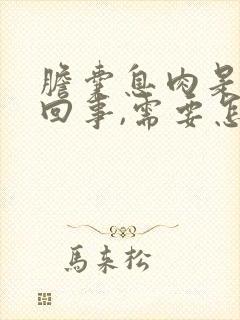 膽囊息肉是
回事,需要怎
馬來松